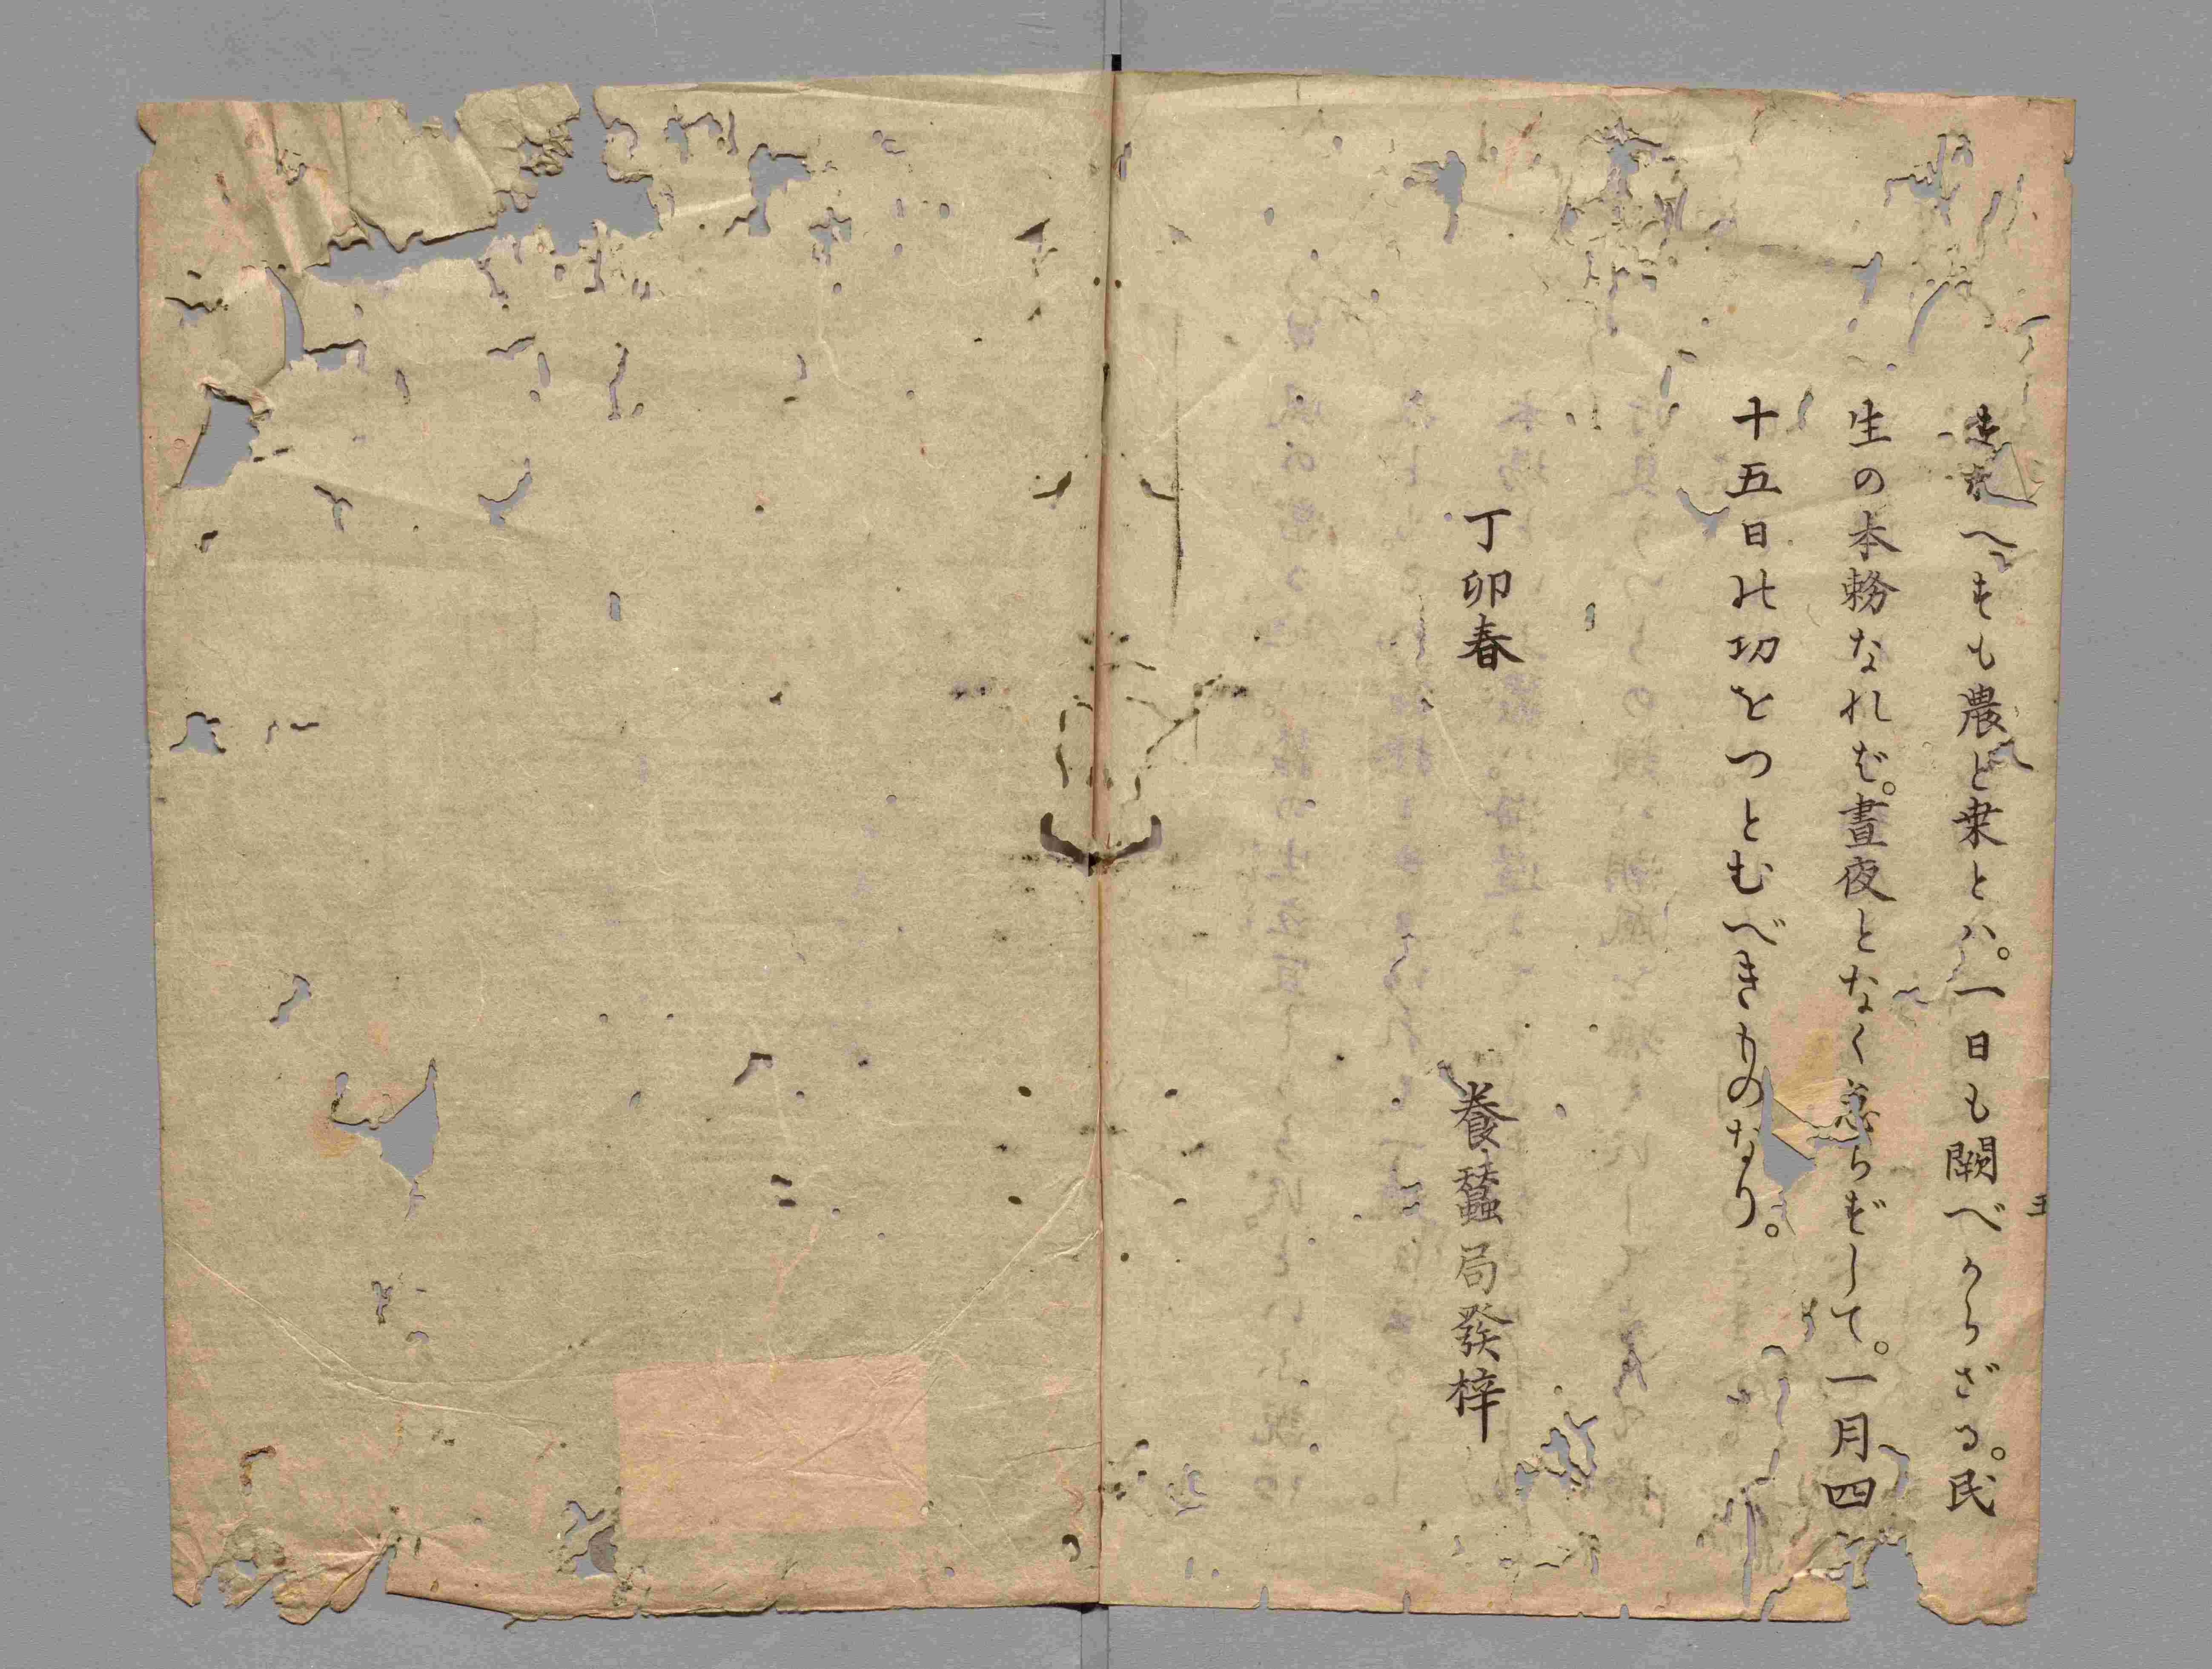 へも農と桒とハ。一日も闕べからざる。民
生の本務なれば。晝夜となく怠らずして。一月四
十五日の功をつとむべきものなり。
丁卯春
養蠶局發梓